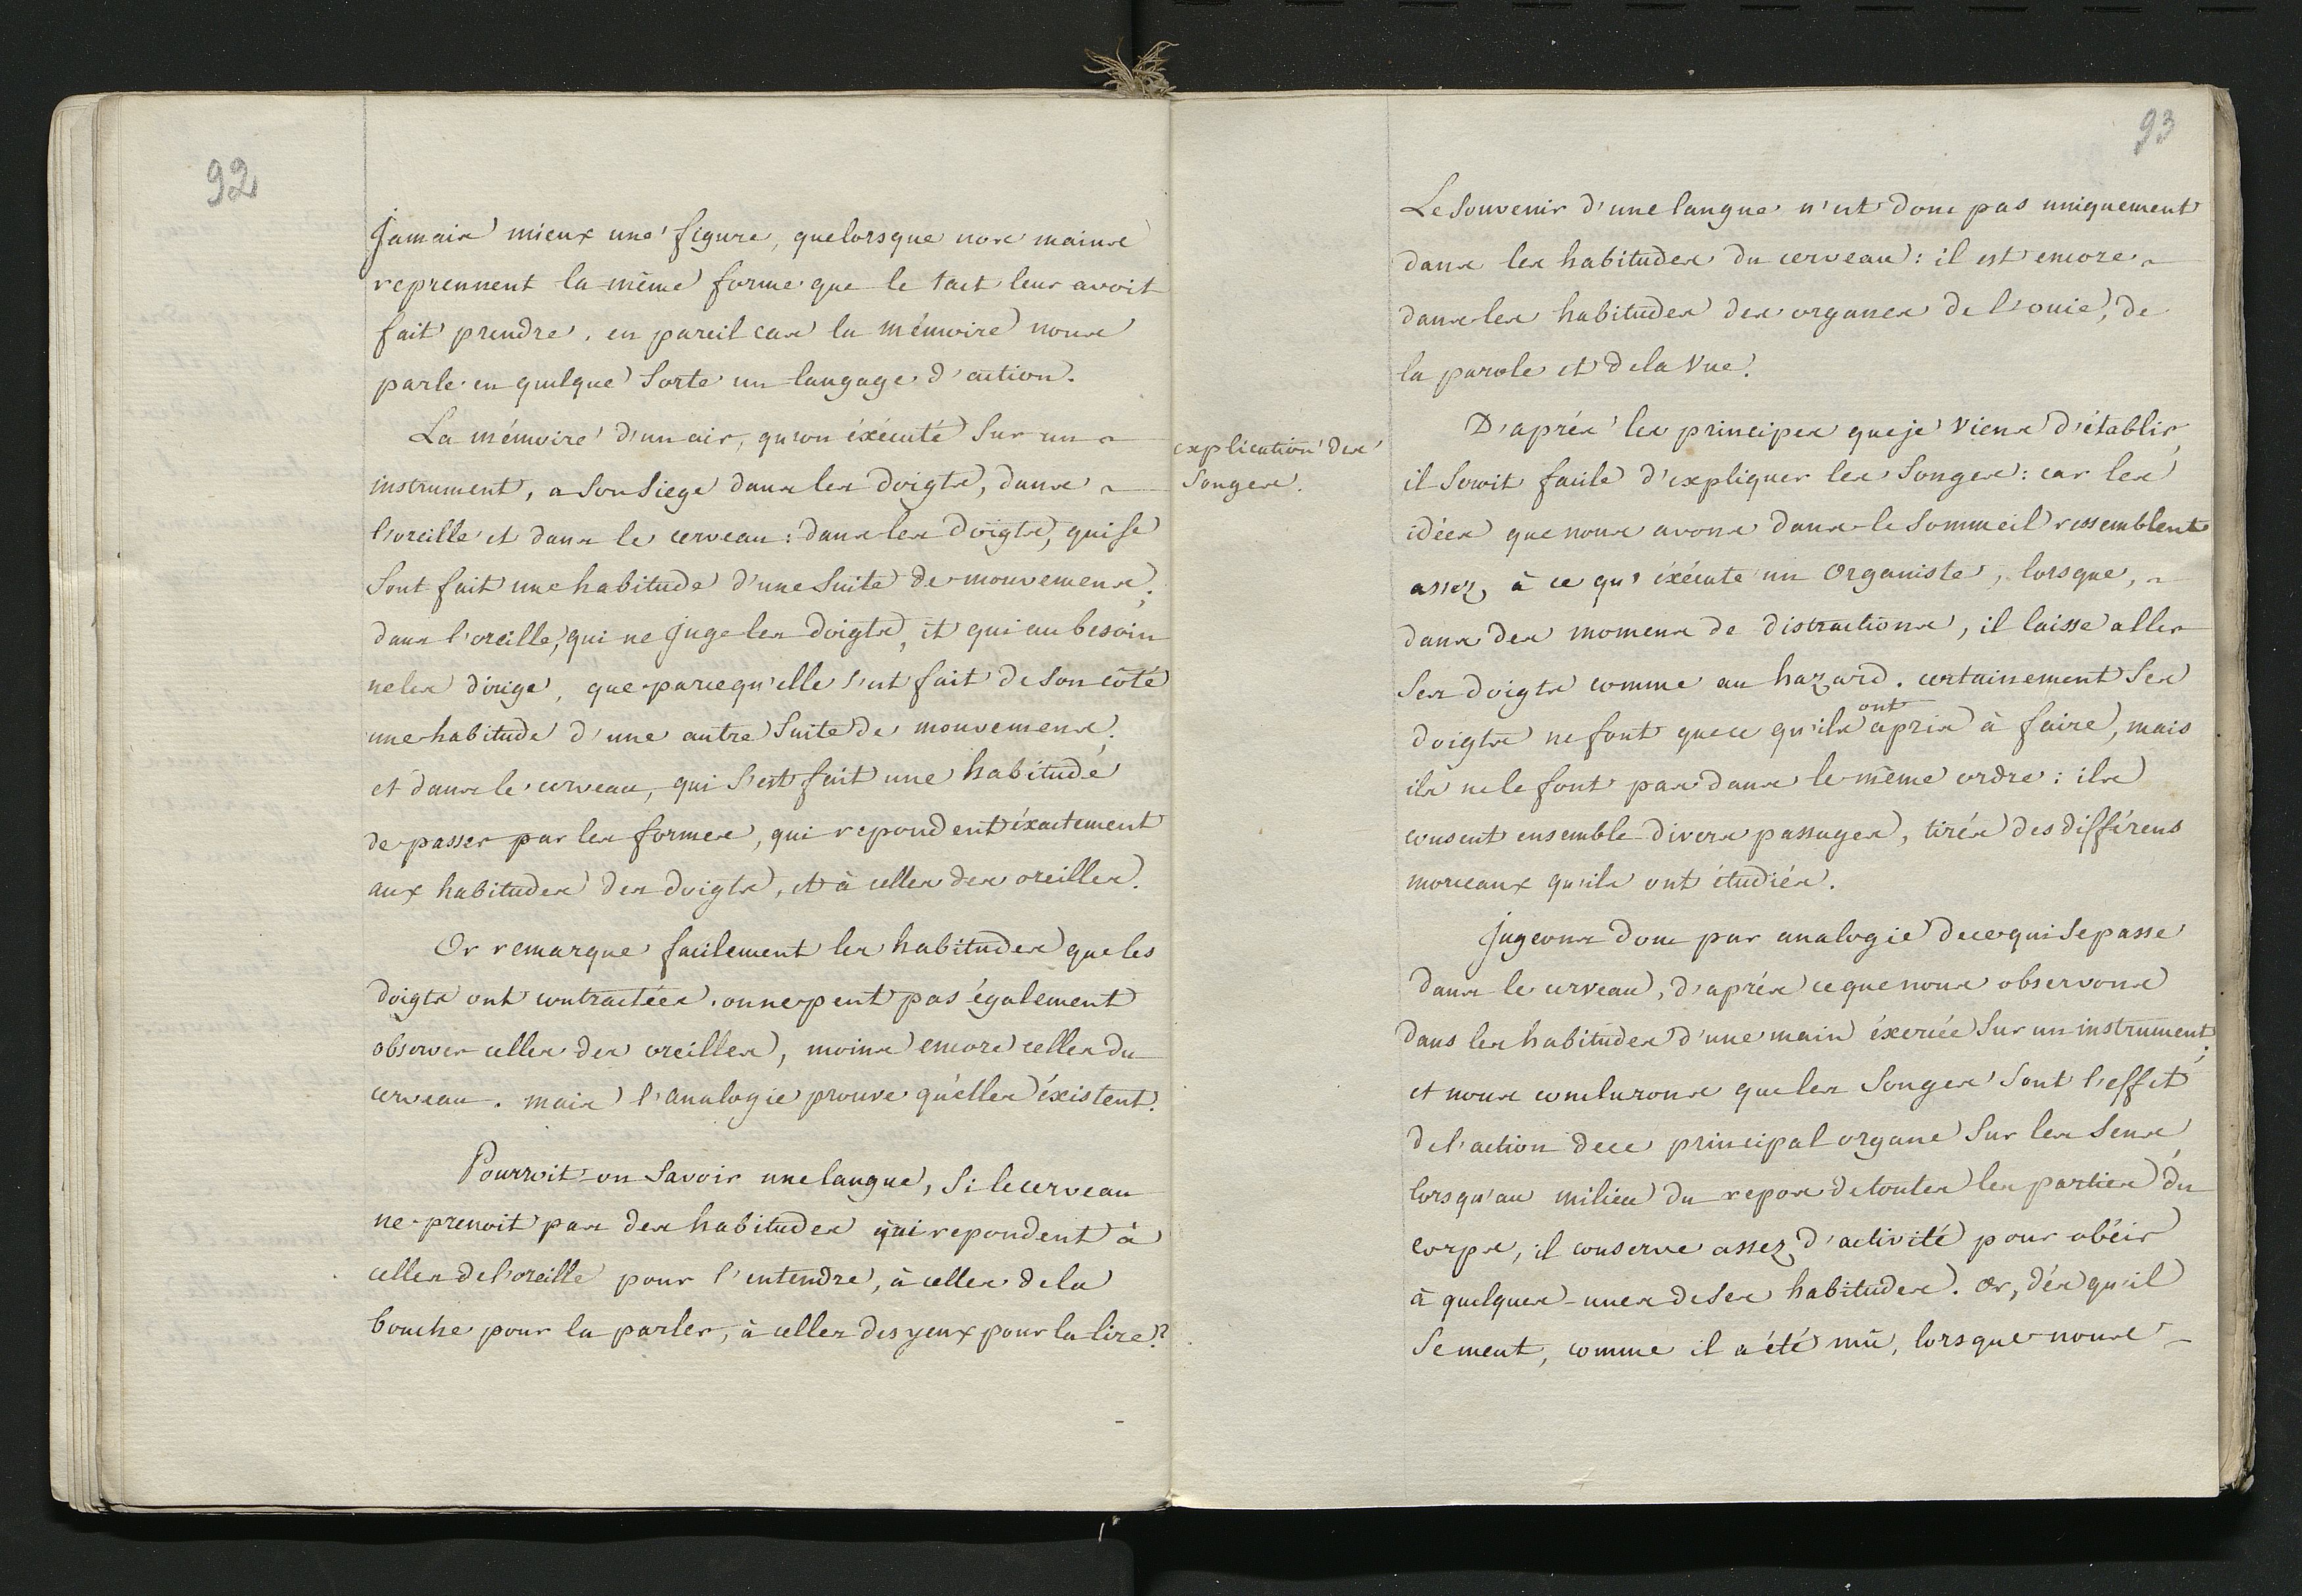 92
Jamais mieux une figure, que lorsque nos mains
reprennent la même forme que le tact leur avoit
fait prendre. en pareil cas la mémoire nous
parle en quelque sorte un langage d'action.
La mémoire d'un air, qu'on éxécute sur un
instrument, a son siege dans les doigts, dans
l'oreille et dans le cerveau: dans les doigts, qui se
sont fait une habitude d'une suite de mouvemens;
dans l'oreille, qui ne juge les doigts, et qui au besoin
ne les dirige, que parcequ'elle s'est fait de son côté
une habitude d'une autre suite de mouvemens;
et dans le cerveau, qui s'est fait une habitude
de passer par les formes, qui repondent éxactement
aux habitudes des doigts, et à celles des oreilles.
Or remarque facilement les habitudes que les
doigts ont contractées. on ne peut pas également
observer celles des oreilles, moins encore celles du
cerveau. mais l'analogie prouve qu'elles éxistent.
Pourroit-on savoir une langue, si le cerveau
ne prenoit pas des habitudes qui repondent à
celles de l'oreille pour l'entendre, à celles de la
bouche pour la parler, à celles des yeux pour la lire?
93
Le souvenir d'une langue n'est donc pas uniquement
dans les habitudes du cerveau: il est encore
dans les habitudes des organes de l'ouie, de
la parole et de la vue.
explication des
songes.
D'aprés les principes que je viens d'établir,
il seroit facile d'expliquer les songes: car les
idées que nous avons dans le sommeil ressemblent
assez à ce qu'éxécute un Organiste, lorsque,
dans des momens de distractions, il laisse aller
ses doigts comme au hazard. certainement ses
doigts ne font que ce qu'ils ont apris à faire, mais
ils ne le font pas dans le même ordre: ils
cousent ensemble divers passages, tirés des différens
morceaux qu'ils ont étudiés.
Jugeons donc par analogie de ce qui se passe
dans le cerveau, d'aprés ce que nous observons
dans les habitudes d'une main éxercée sur un instrument;
et nous conclurons que les songes sont l'effet
de l'action de ce principal organe sur les sens,
lorsqu'au milieu du repos de toutes les parties du
corps, il conserve assez d'activité pour obéir
à quelques-unes de ses habitudes. Or, dés qu'il
se meut, comme il a été mû, lorsque nous